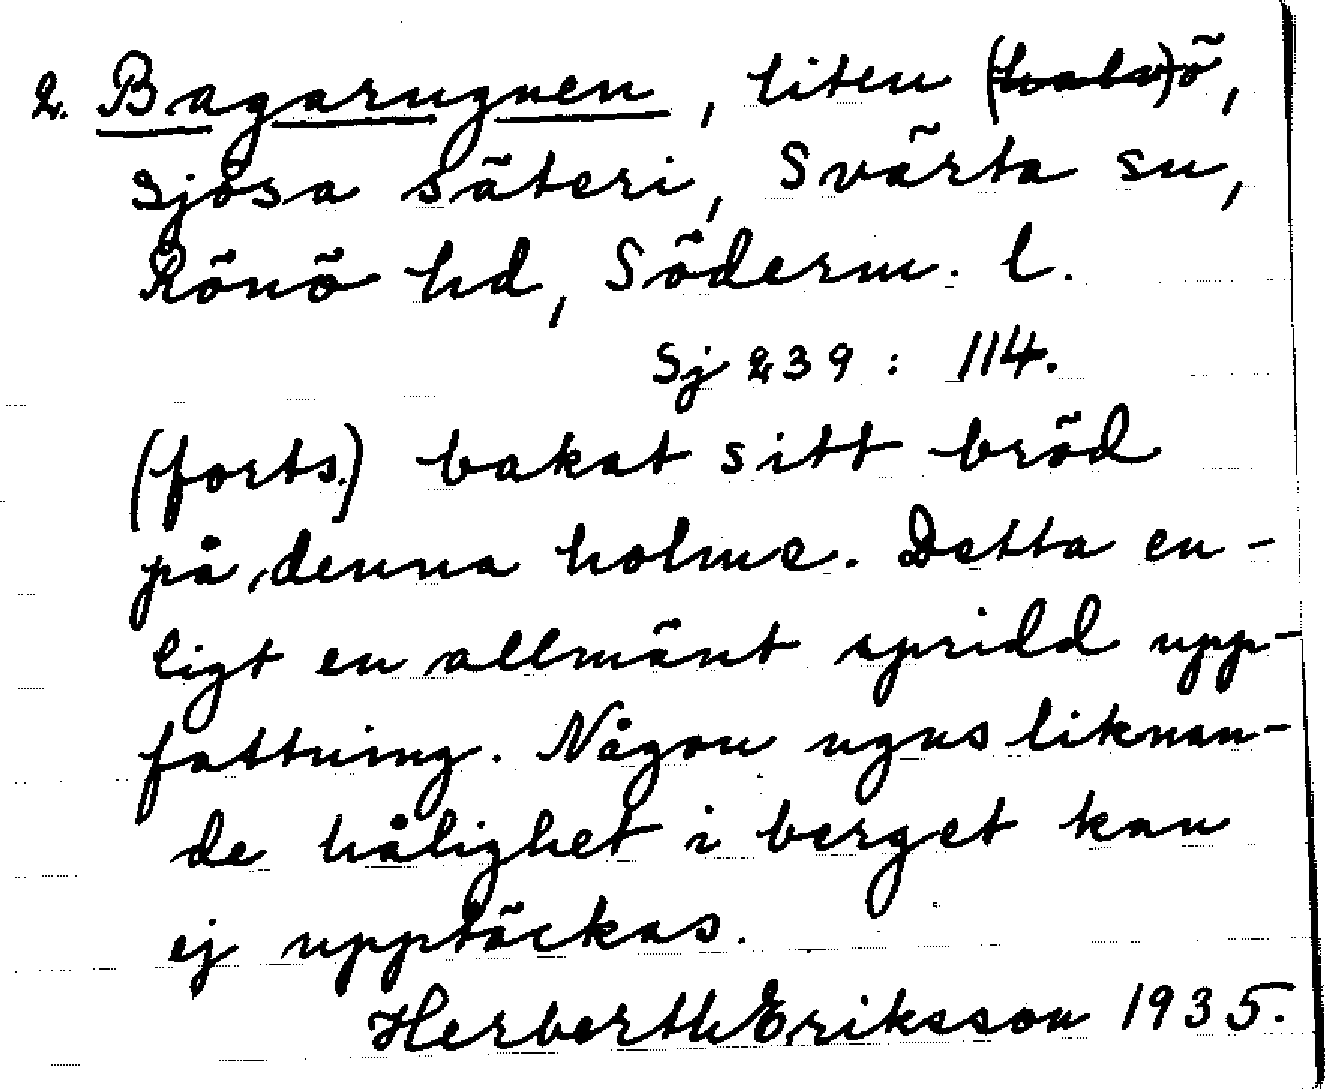 2. Bagarugnen, liten (halv)ö,
Sjösa säteri, Svärta sn,
Rönö hd, Söderm. l.
Sj 239 : 114.
(forts.) bakat sitt bröd
på denna holme. Detta en-
ligt en allmänt spridd upp-
fattning. Någon ugns liknan-
de hålighet i berget kan
ej upptäckas.
Herberth Eriksson 1935.